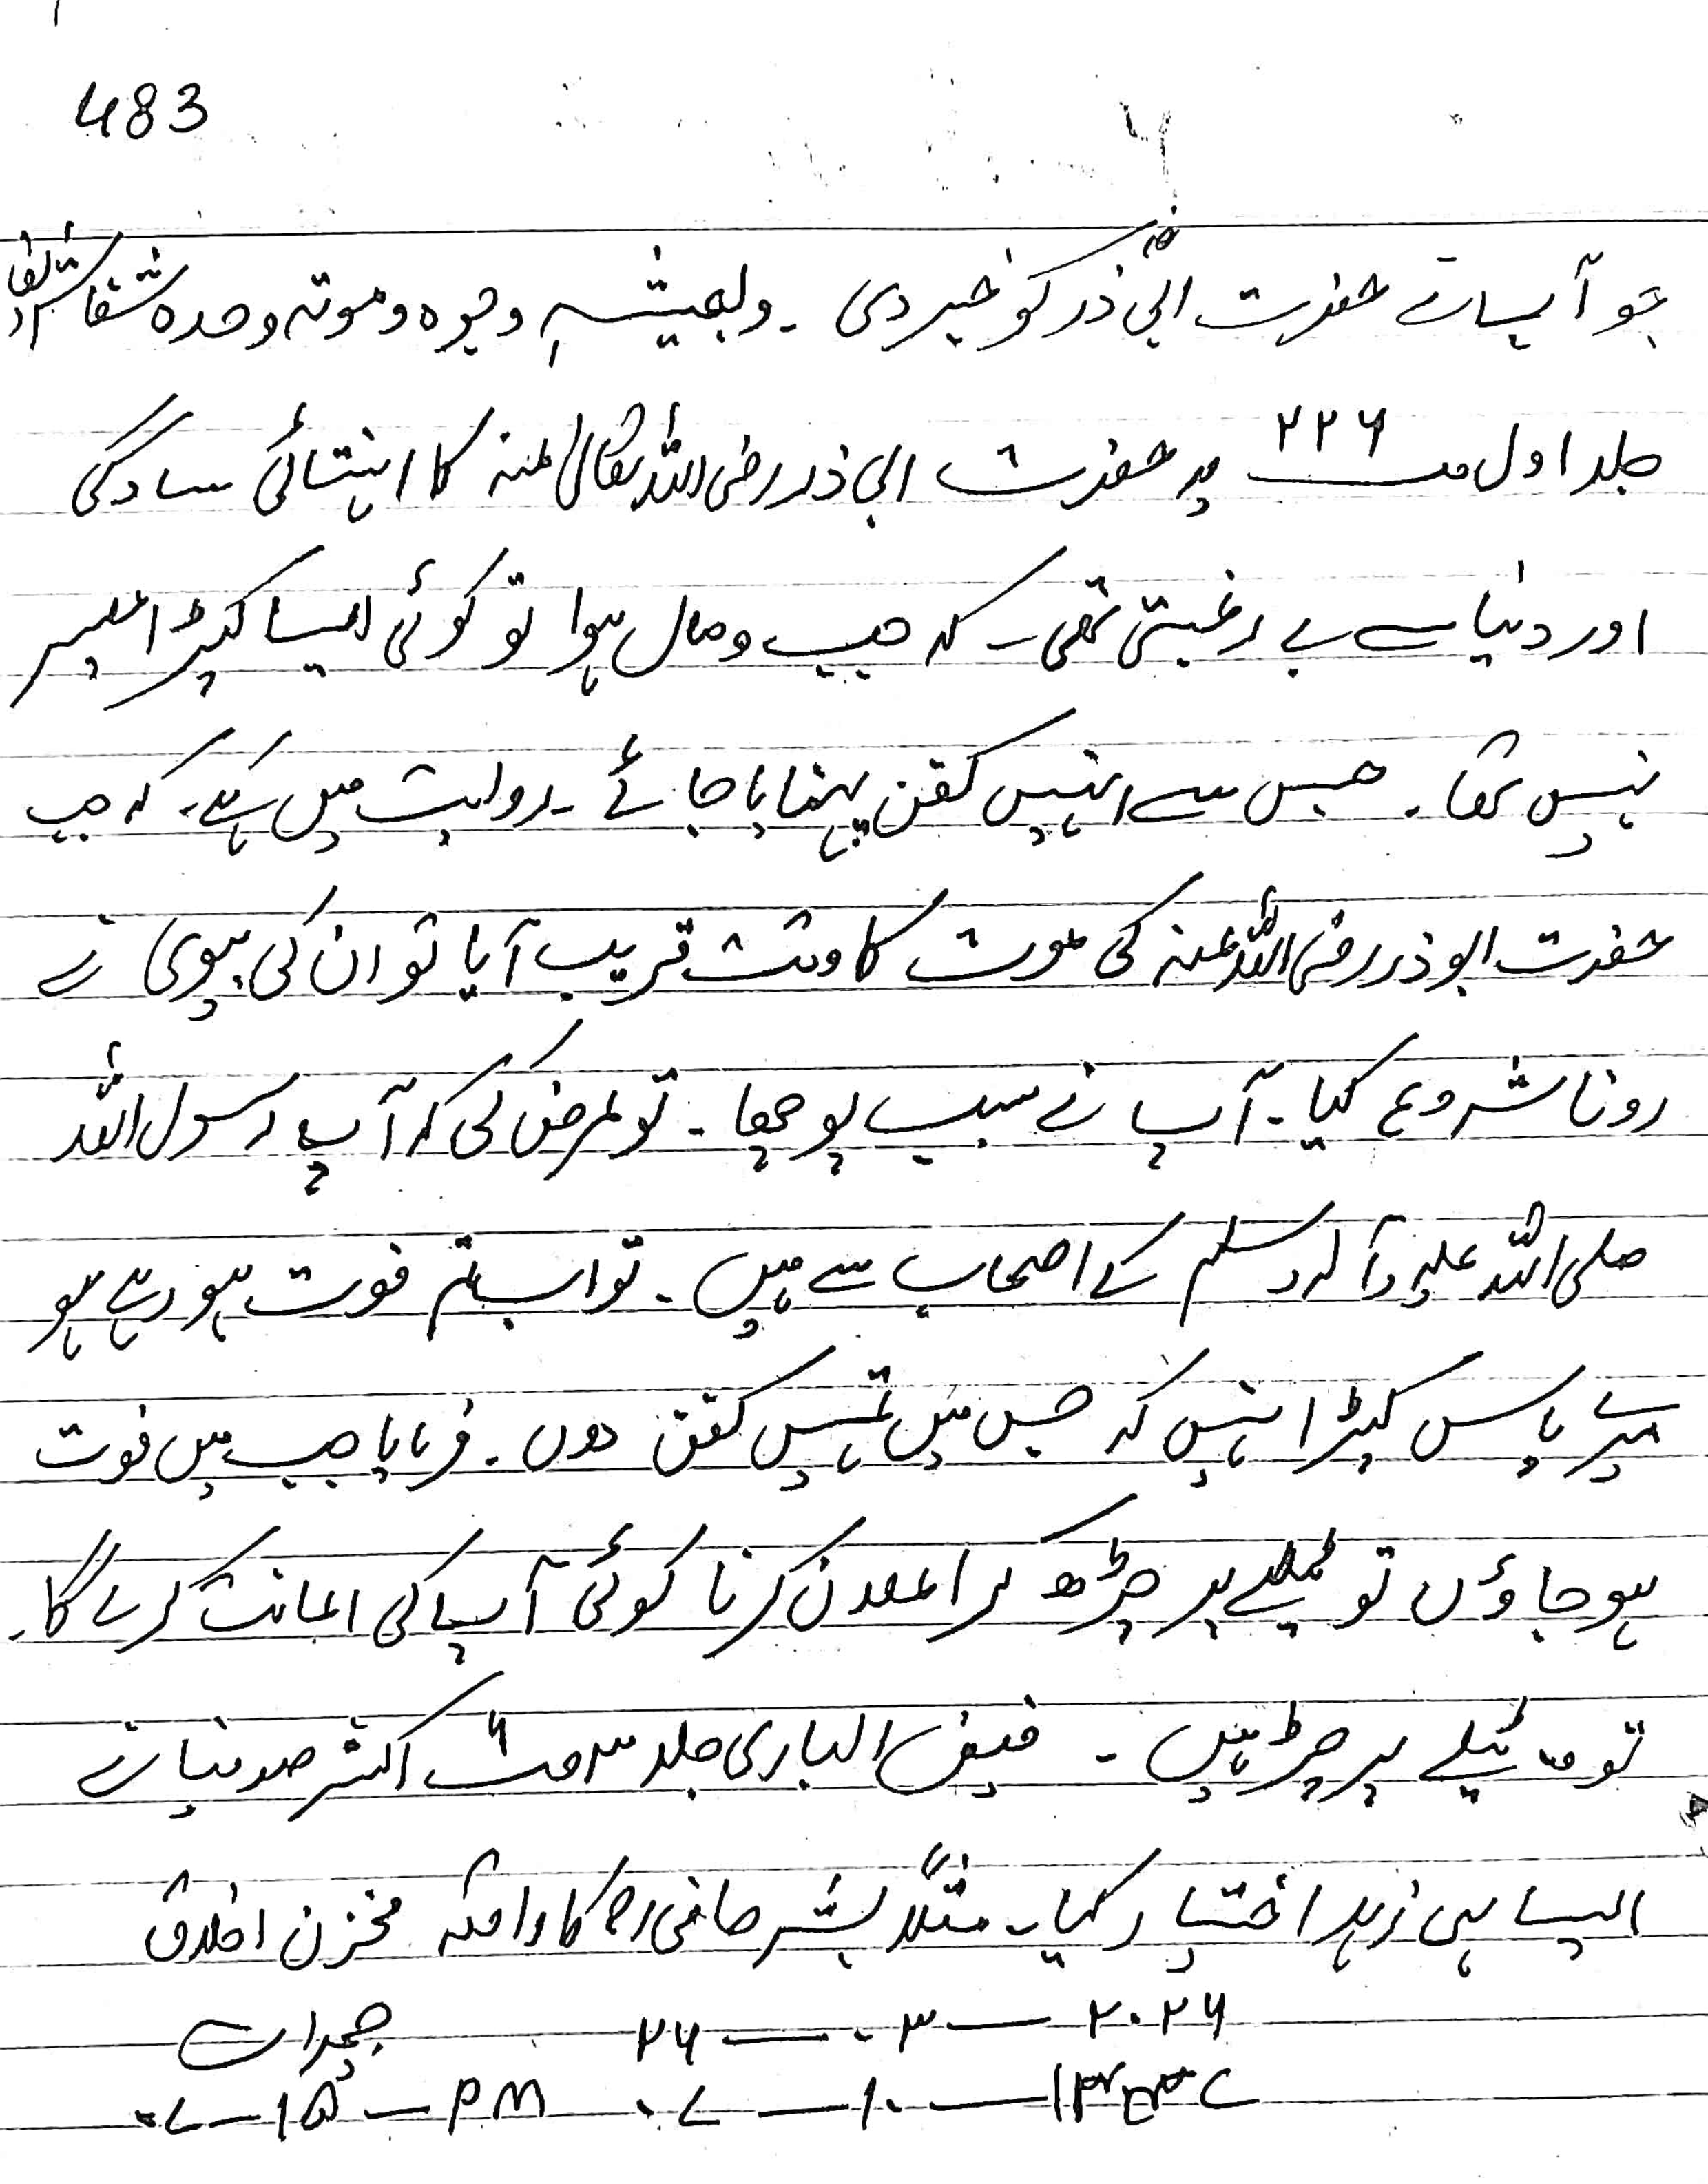 483
جو آپ نے حضرت ابی ذرؓ کو خبر دی ۔ ولعیشہ وحیوہ وموتہ وحدہ شفا شریف
جلد اول صـ ۲۲۶ پر حضرت ابی ذر رضی اللہ تعالیٰ عنہ کا انتہائی سادگی
اور دنیا سے بے رغبتی تھی ۔ کہ جب وصال ہوا تو کوئی ایسا کپڑا میسر
نہیں تھا ۔ جس سے انہیں کفن پہنایا جائے ۔ روایت میں ہے ۔ کہ جب
حضرت ابوذر رضی اللہ عنہ کی موت کا وقت قریب آیا تو ان کی بیوی نے
رونا شروع کیا ۔ آپ نے سبب پوچھا ۔ تو عرض کی کہ آپ رسول اللہ
صلی اللہ علیہ وآلہ وسلم کے اصحاب سے ہیں ۔ تو اب تم فوت ہو رہے ہو
میرے پاس کپڑا نہیں کہ جس میں تمہیں کفن دوں ۔ فرمایا جب میں فوت
ہو جاؤں تو ٹیلے پر چڑھ کر اعلان کرنا کوئی آپ کی اعانت کرے گا ۔
تو وہ ٹیلے پر چڑہیں ۔ فیض الباری جلد ۳ صـ ۶ اکثر صوفیا نے
ایسا ہی زہد اختیار کیا ۔ مثلاً بشر حافی رح کا واقعہ مخزن اخلاق
۲۶ — ۰۳ — ۲۰۲۶ جمعرات
۰۷ — ۱۰ — ۱۴۴۷ ۰۷ — ۱۵ — PM